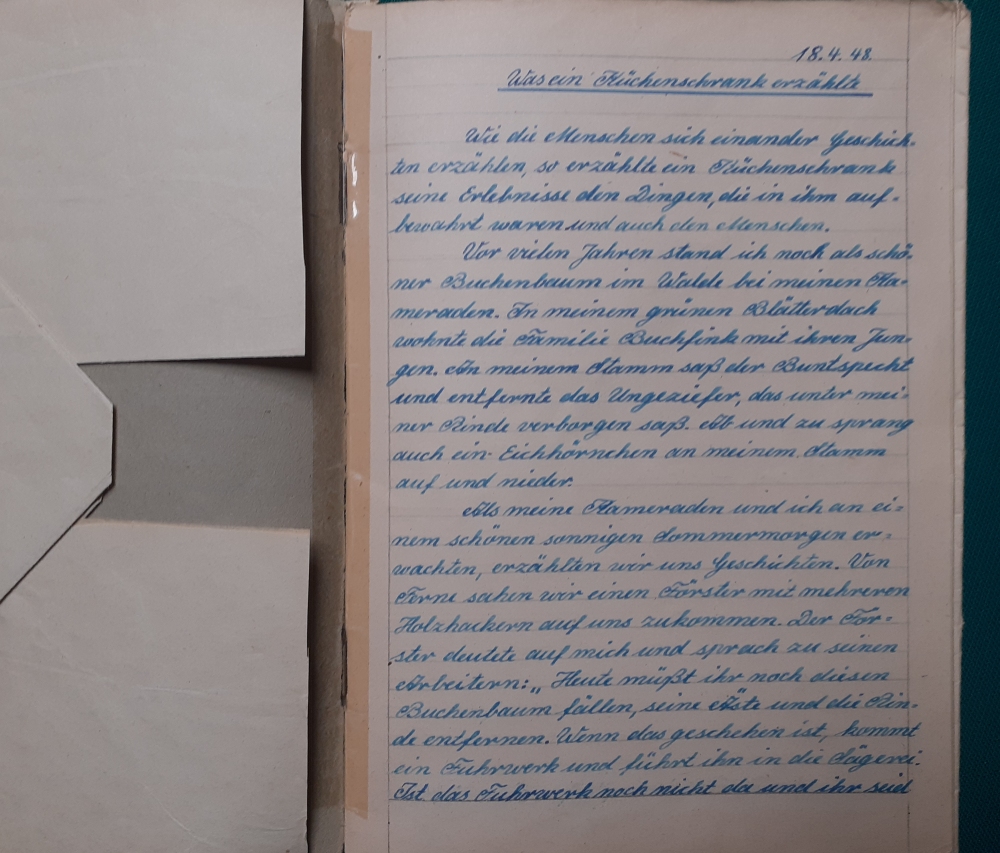 18.4.48.
Was ein Küchenschrank erzählte
Wie die Menschen sich einander Geschich-
ten erzählen, so erzählte ein Küchenschrank
seine Erlebnisse den Dingen, die in ihm auf-
bewahrt waren und auch den Menschen.
Vor vielen Jahren stand ich noch als schö-
ner Buchenbaum im Walde bei meinen Ka-
meraden. In meinem grünen Blätterdach
wohnte die Familie Buchfink mit ihren Jun-
gen. An meinem Stamm saß der Buntspecht
und entfernte das Ungeziefer, das unter mei-
ner Rinde verborgen saß. Ab und zu sprang
auch ein Eichhörnchen an meinem Stamm
auf und nieder.
Als meine Kameraden und ich an ei-
nem schönen sonnigen Sommermorgen er-
wachten, erzählten wir uns Geschichten. Von
Ferne sahen wir einen Förster mit mehreren
Holzhackern auf uns zukommen. Der För-
ster deutete auf mich und sprach zu seinen
Arbeitern: „Heute müßt ihr noch diesen
Buchenbaum fällen, seine Äste und die Rin-
de entfernen. Wenn das geschehen ist, kommt
ein Fuhrwerk und führt ihn in die Sägerei.
Ist das Fuhrwerk noch nicht da und ihr seid